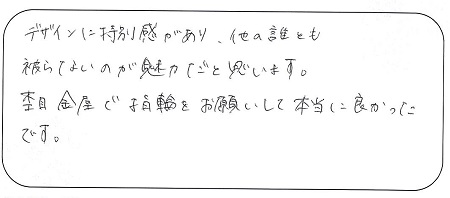 デザインに特別感があり、他の誰とも
被らないのが魅力だと思います。
杢目金屋で指輪をお願いして本当に良かった
です。